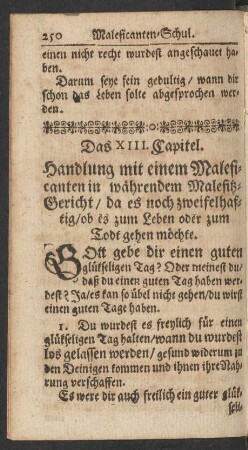 250 Maleficanten-Schul.
einen nicht recht wurdest angeschauet ha-
ben.
Darum seye fein gedultig / wann dir
schon das Leben solte abgesprochen wer-
den.
Das XIII. Capitel.
Handlung mit einem Malefi-
canten in währendem Malefitz-
Gericht / da es noch zweifelhaf-
tig / ob es zum Leben oder zum
Todt gehen möchte.
GOtt gebe dir einen guten
glükseligen Tag? Oder meinest du /
daß du einen guten Tag haben wer-
dest? Ja / es kan so übel nicht gehen / du wirst
einen guten Tage haben.
1. Du wurdest es freylich für einen
glükseligen Tag halten / wann du wurdest
los gelassen werden / gesund widerum zu
den Deinigen kommen und ihnen ihre Nah-
rung verschaffen.
Es were dir auch freilich ein guter glük-
seli-